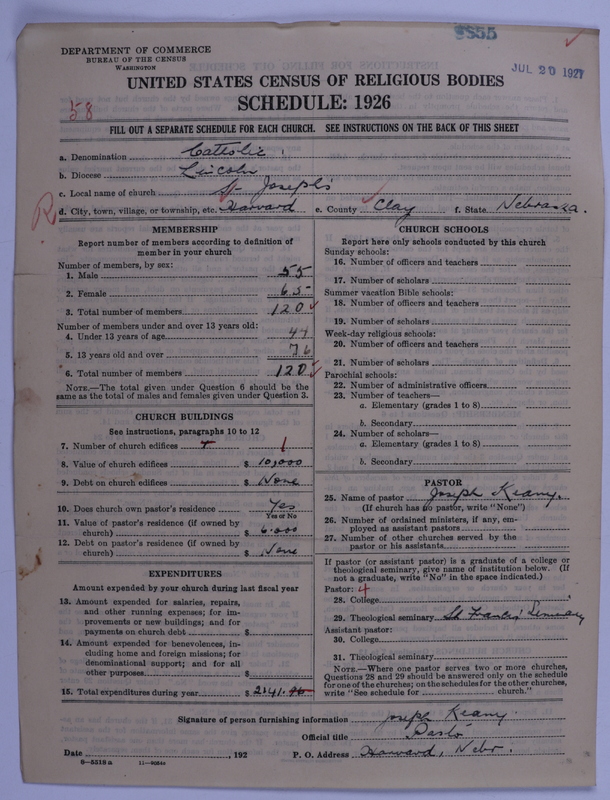 9855
DEPARTMENT OF COMMERCE
BUREAU OF THE CENSUS
WASHINGTON
JUL 20 1927
UNITED STATES CENSUS OF RELIGIOUS BODIES
SCHEDULE: 1926
58
FILL OUT A SEPARATE SCHEDULE FOR EACH CHURCH. SEE INSTRUCTIONS ON THE BACK OF THIS SHEET
a. Denomination Catholic.
b. Diocese Lincoln
c. Local name of church St Joseph's
R
d. City, town, village, or township, etc. Harvard e. County Clay f. State Nebraska.
MEMBERSHIP
Report number of members according to definition of
member in your church
Number of members, by sex:
1. Male 55
2. Female 65
3. Total number of members 120
Number of members under and over 13 years old:
4. Under 13 years of age 44
5. 13 years old and over 76
6. Total number of members 120
NOTE.—The total given under Question 6 should be
same as the total of males and females given under Question 3.
CHURCH BUILDINGS
See instructions, paragraphs 10 to 12
7. Number of church edifices 1
8. Value of church edifices $ 10,000
9. Debt on church edifices $ None
10. Does church own pastor's residence Yes
Yes or No
11. Value of pastor's residence (if owned by
church) $ 6.000
12. Debt on pastor's residence (if owned by
church) $ None
EXPENDITURES
Amount expended by your church during last fiscal year
13. Amount expended for salaries, repairs,
and other running expenses; for im-
provements or new buildings; and for
payments on church debt $
14. Amount expended for benevolences, in-
cluding home and foreign missions; for
denominational support; and for all
other purposes $
15. Total expenditures during year $ 2141.96
CHURCH SCHOOLS
Report here only schools conducted by this church
Sunday schools:
16. Number of officers and teachers
17. Number of scholars
Summer vacation Bible schools:
18. Number of officers and teachers
19. Number of scholars
Week-day religious schools:
20. Number of officers and teachers
21. Number of scholars
Parochial schools:
22. Number of administrative officers
23. Number of teachers—
a. Elementary (grades 1 to 8)
b. Secondary
24. Number of scholars—
a. Elementary (grades 1 to 8)
b. Secondary
PASTOR
25. Name of pastor Joseph Keany.
(If church has no pastor, write "None")
26. Number of ordained ministers, if any, em-
ployed as assistant pastors
27. Number of other churches served by the
pastor or his assistants
If pastor (or assistant pastor) is a graduate of a college or
theological seminary, give name of institution below. (If
not a graduate, write "No" in the space indicated.)
Pastor: 4
28. College
29. Theological seminary St Francis' Seminary
Assistant pastor:
30. College
31. Theological seminary
NOTE.—Where one pastor serves two or more churches,
Questions 28 and 29 should be answered only on the schedule
for one of the churches; on the schedules for the other churches,
write "See schedule for church."
Signature of person furnishing information Joseph Keany.
Official title Pastor
Date , 192 P. O. Address Harvard, Nebr.
8—5318 a